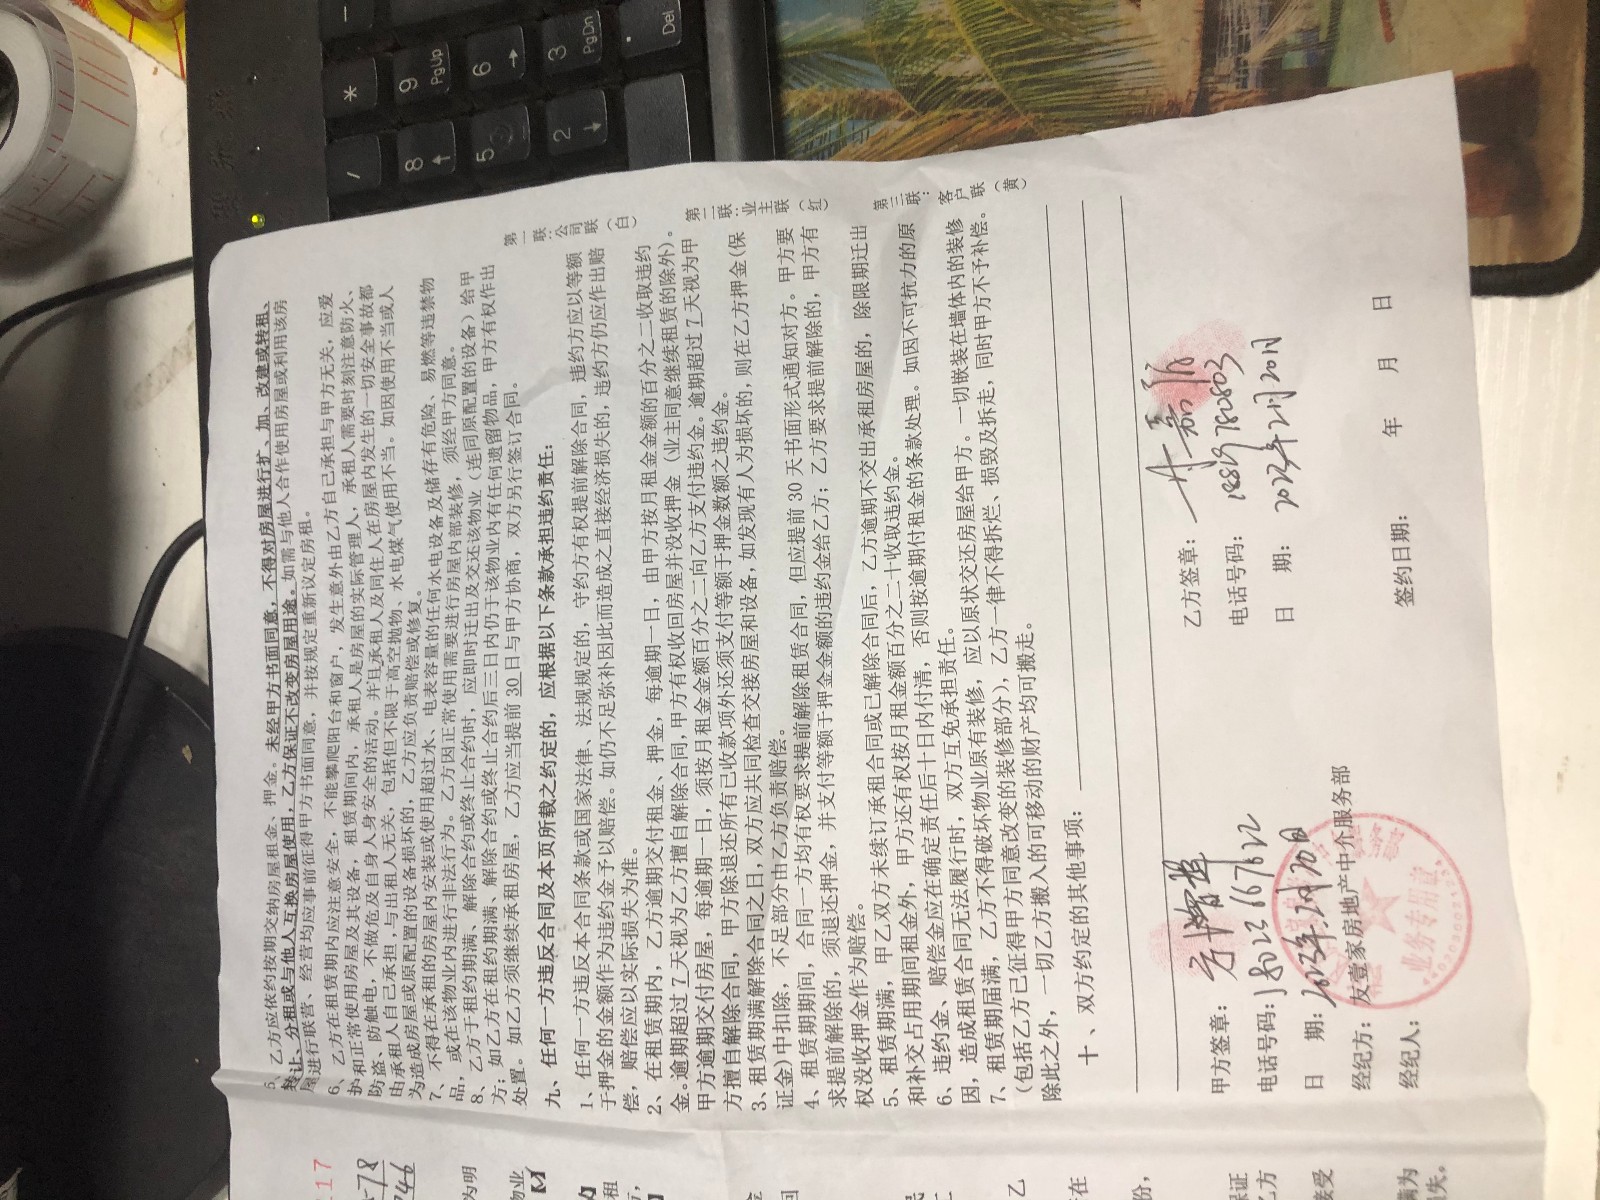 5、乙方应依约按期交纳房屋租金、押金。未经甲方书面同意，不得对房屋进行扩、加、改建或转租、
转让、分租或与他人互换房屋使用，乙方保证不改变房屋用途。如需与他人合作使用房屋或利用该房
屋进行联营、经营均应事前征得甲方书面同意，并按规定重新议定房租。
6、乙方在租赁期内应注意安全，不能攀爬阳台和窗户，发生意外由乙方自己承担与甲方无关，应爱
护和正常使用房屋及其设备，租赁期间内，承租人是房屋的实际管理人，承租人需要时刻注意防火、
防盗、防触电，不做危及自身人身安全的活动。并且承租人及同住人在房屋内发生的一切安全事故都
由承租人自己承担，与出租人无关，包括但不限于高空抛物、水电煤气使用不当。如因使用不当或人
为造成房屋或原配置的设备损坏的，乙方应负责赔偿或修复。
7、不得在承租的房屋内安装或使用超过水、电表容量的任何水电设备及储存有危险、易燃等违禁物
品，或在该物业内进行非法行为。乙方因正常使用需要进行房屋内部装修，须经甲方同意。
8、乙方于租约期满、解除合约或终止合约时，应即时迁出及交还该物业（连同原配置的设备）给甲
方；如乙方在租约期满、解除合约或终止合约后三日内仍于该物业内有任何遗留物品，甲方有权作出
处置。如乙方须继续承租房屋，乙方应当提前 30 日与甲方协商，双方另行签订合同。
九、任何一方违反合同及本页所载之约定的，应根据以下条款承担违约责任：
1、任何一方违反本合同条款或国家法律、法规规定的，守约方有权提前解除合同，违约方应以等额
于押金的金额作为违约金予以赔偿。如仍不足弥补因此而造成之直接经济损失的，违约方仍应作出赔
偿，赔偿应以实际损失为准。
2、在租赁期内，乙方逾期交付租金、押金，每逾期一日，由甲方按月租金金额的百分之二收取违约
金。逾期超过 7 天视为乙方擅自解除合同，甲方有权收回房屋并没收押金（业主同意继续租赁的除外）。
甲方逾期交付房屋，每逾期一日，须按月租金金额百分之二向乙方支付违约金。逾期超过 7 天视为甲
方擅自解除合同，甲方除退还所有已收款项外还须支付等额于押金数额之违约金。
3、租赁期满解除合同之日，双方应共同检查交接房屋和设备，如发现有人为损坏的，则在乙方押金（保
证金）中扣除，不足部分由乙方负责赔偿。
4、租赁期期间，合同一方均有权要求提前解除租赁合同，但应提前 30 天书面形式通知对方。甲方要
求提前解除的，须退还押金，并支付等额于押金金额的违约金给乙方；乙方要求提前解除的，甲方有
权没收押金作为赔偿。
5、租赁期满，甲乙双方未续订承租合同或已解除合同后，乙方逾期不交出承租房屋的，除限期迁出
和补交占用期间租金外，甲方还有权按月租金额百分之二十收取违约金。
6、违约金、赔偿金应在确定责任后十日内付清，否则按逾期付租金的条款处理。如因不可抗力的原
因，造成租赁合同无法履行时，双方互免承担责任。
7、租赁期届满，乙方不得破坏物业原有装修，应以原状交还房屋给甲方。一切嵌装在墙体内的装修
（包括乙方已征得甲方同意改变的装修部分），乙方一律不得拆烂、损毁及拆走，同时甲方不予补偿。
除此之外，一切乙方搬入的可移动的财产均可搬走。
十、双方约定的其他事项：
甲方签章：
电话号码：18022667622
日 期：2023年2月20日
经纪方：友壹家房地产中介服务部
经纪人：
乙方签章：
电话号码：
日 期：2023年2月20日
签约日期： 年 月 日
第一联：公司联（白）
第二联：业主联（红）
第三联：客户联（黄）
业务专用章
117
为明
物业
租
回
乙
在
份，
保证
乙方
接受
失。
*
/
9
PgUp
8
6
5
3
PgDn
2
.
Del